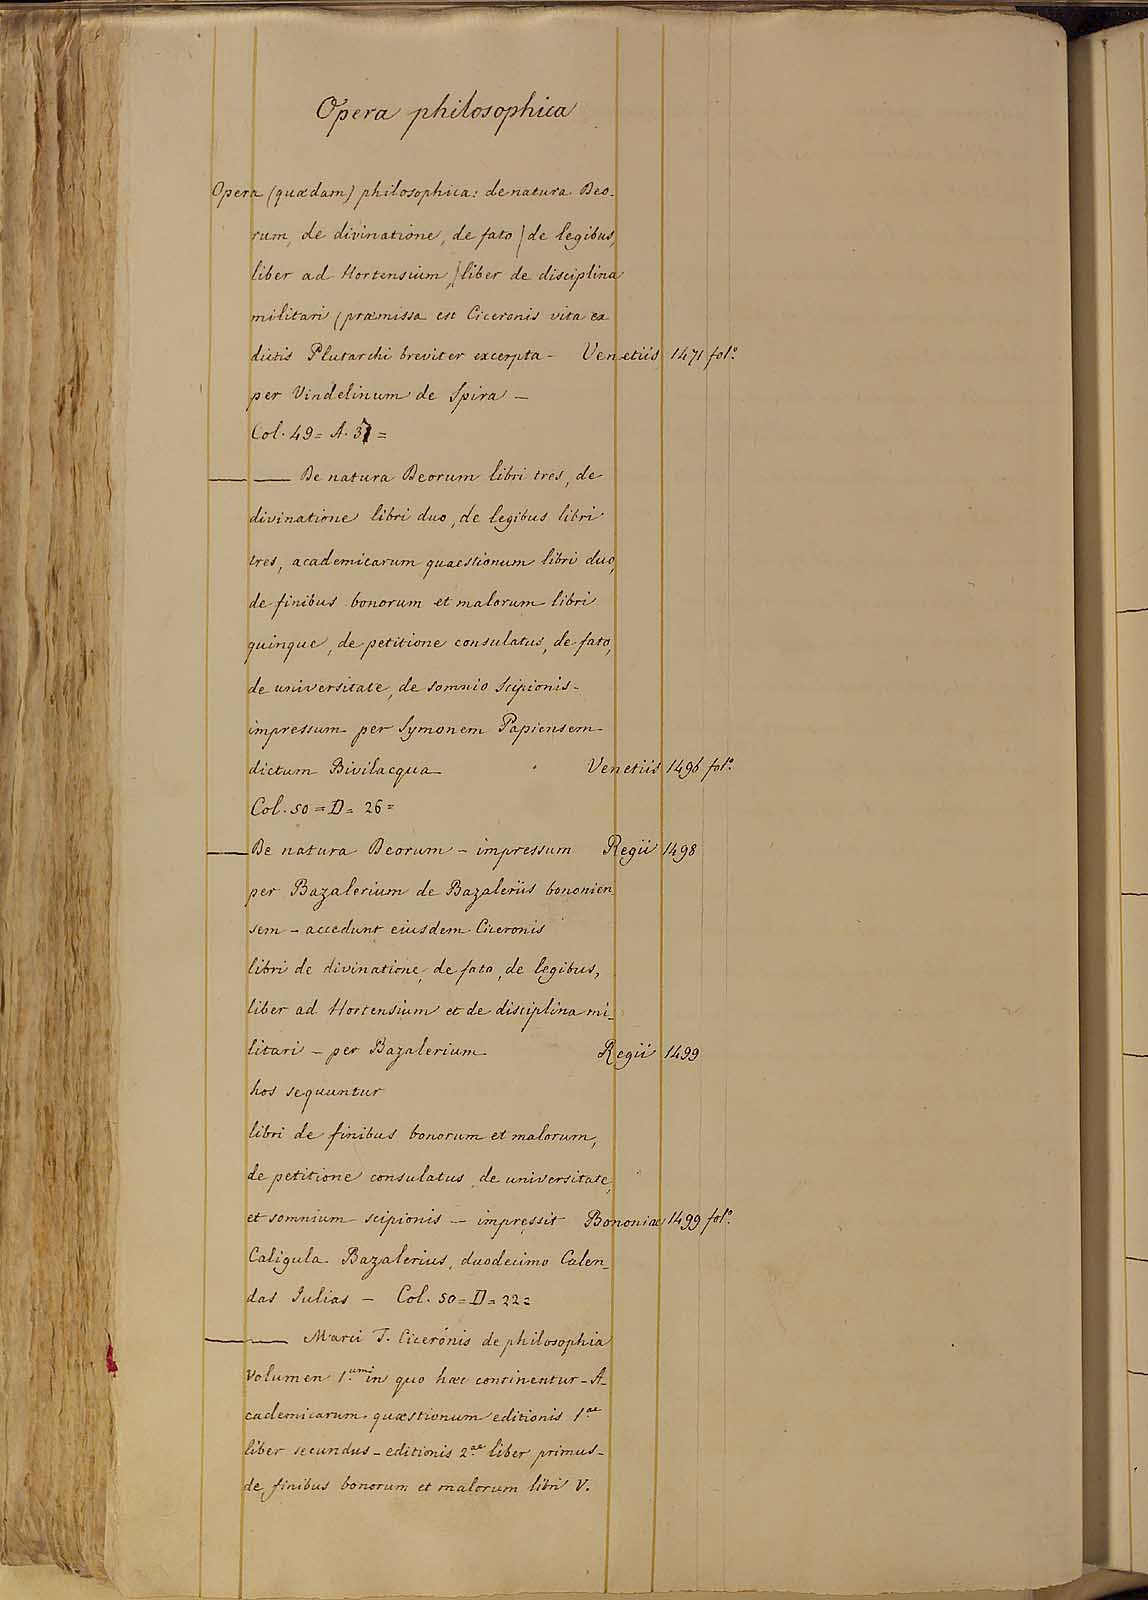 Opera philosophica
Opera (quædam) philosophica: de natura Deo-
rum, de divinatione, de fato) de legibus,
liber ad Hortensium,) liber de disciplina
militari (præmissa est Ciceronis vita ex
dictis Plutarchi breviter excerpta - Venetiis 1471 fol.°
per Vindelinum de Spira -
Col. 49 = A. 37 =
De natura Deorum libri tres, de
divinatione libri duo, de legibus libri
tres, academicarum quaestionum libri duo,
de finibus bonorum et malorum libri
quinque, de petitione consulatus, de fato,
de universitate, de somnio Scipionis-
impressum per Symonem Papiensem
dictum Bivilacqua Venetiis 1496 fol.°
Col. 50 = D = 26 =
De natura Deorum - impressum Regii 1498
per Bazalerium de Bazaleriis bononien
sem - accedunt eiusdem Ciceronis
libri de divinatione, de fato, de legibus,
liber ad Hortensium et de disciplina mi-
litari - per Bazalerium Regii 1499
hos sequuntur
libri de finibus bonorum et malorum,
de petitione consulatus, de universitate,
et somnium scipionis - impressit Bononiæ 1499 fol.°
Caligula Bazalerius, duodecimo Calen-
das Iulias - Col. 50 = D = 22 =
Marci T. Ciceronis de philosophia
volumen 1.um in quo hæc continentur - A-
cademicarum quæstionum editionis 1.ae
liber secundus - editionis 2.ae liber primus -
de finibus bonorum et malorum libri V.